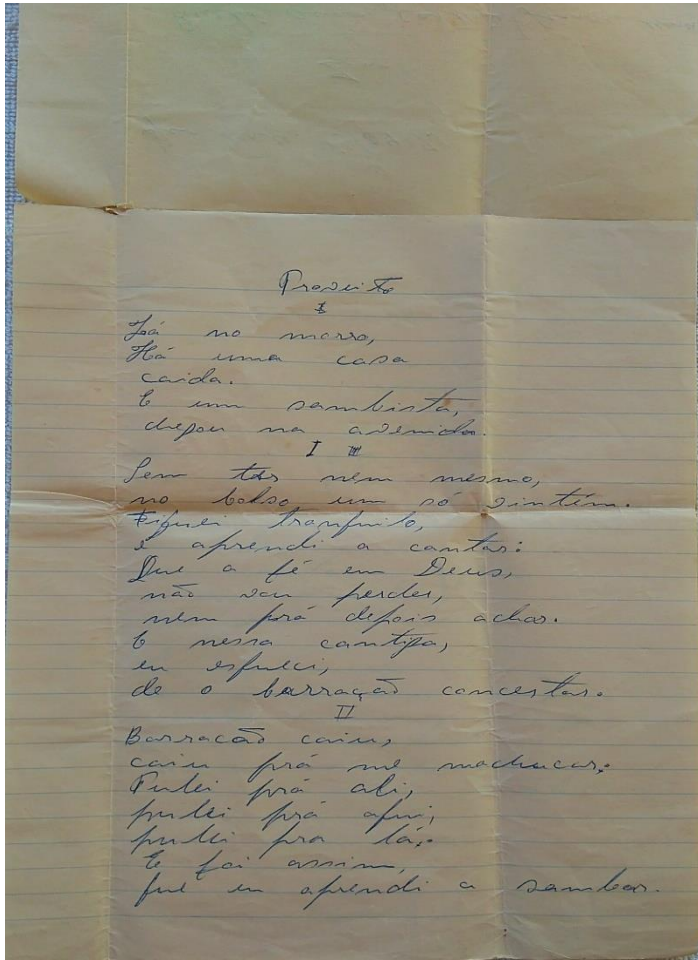 Proveito
I
Lá no morro,
Há uma casa
caida.
E um sambista,
chegou na avenida.
I
Sem ter nem mesmo,
no bolso um só vintém.
Fiquei tranquilo,
e aprendi a cantar:
Que a fé em Deus,
não vou perder,
nem prá depois achar.
E nessa cantiga,
eu esqueci,
de o barracão concertar.
II
Barracão caiu,
caiu prá me machucar;
Pulei prá ali,
pulei prá aqui,
pulei pra lá;
E foi assim,
que eu aprendi a sambar.